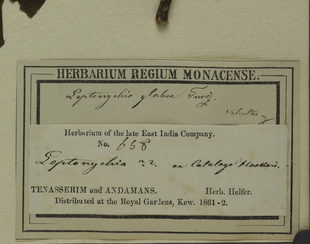 HERBARIUM REGIUM MONACENSE.
Leptonychia glabra Turcz.
Herbarium of the late East India Company.
No. 658
Leptonychia n. sp. ex Catalogo Hookeri.
TENASSERIM and ANDAMANS. Herb. Helfer.
Distributed at the Royal Gardens, Kew. 1861-2.